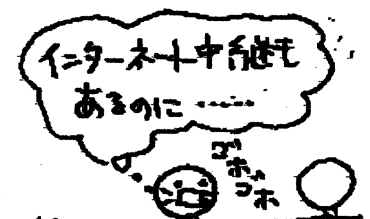 インターネット中継も
あるのに……
ゴホゴホ